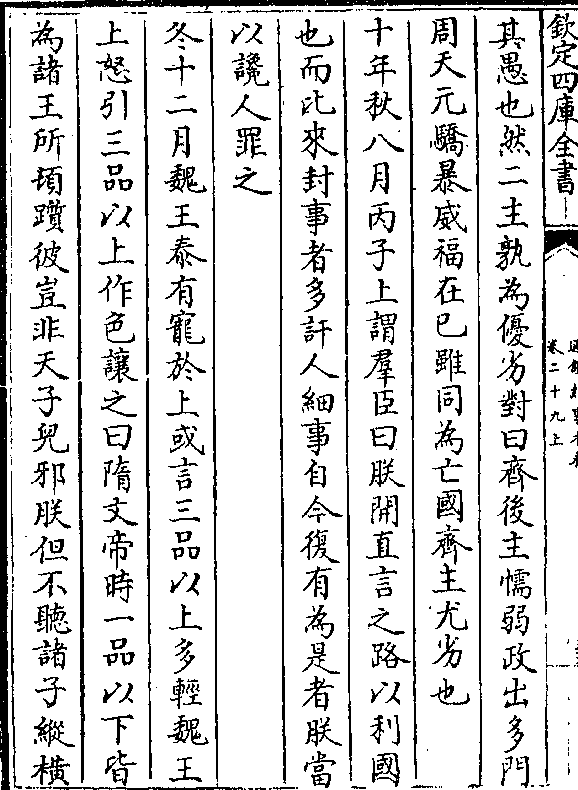 欽定四庫全書
卷二十九上
其愚也然二主孰為優劣對曰齊後主懦弱政出多門
周天元驕暴威福在已雖同為亡國齊主尤劣也
十年秋八月丙子上謂羣臣曰朕開直言之路以利國
也而比來封事者多訐人細事自今復有為是者朕當
以讒人罪之
冬十二月魏王泰有寵於上或言三品以上多輕魏王
上怒引三品以上作色讓之曰隋文帝時一品以下皆
為諸王所頓躓彼豈非天子兒邪朕但不聽諸子縱橫